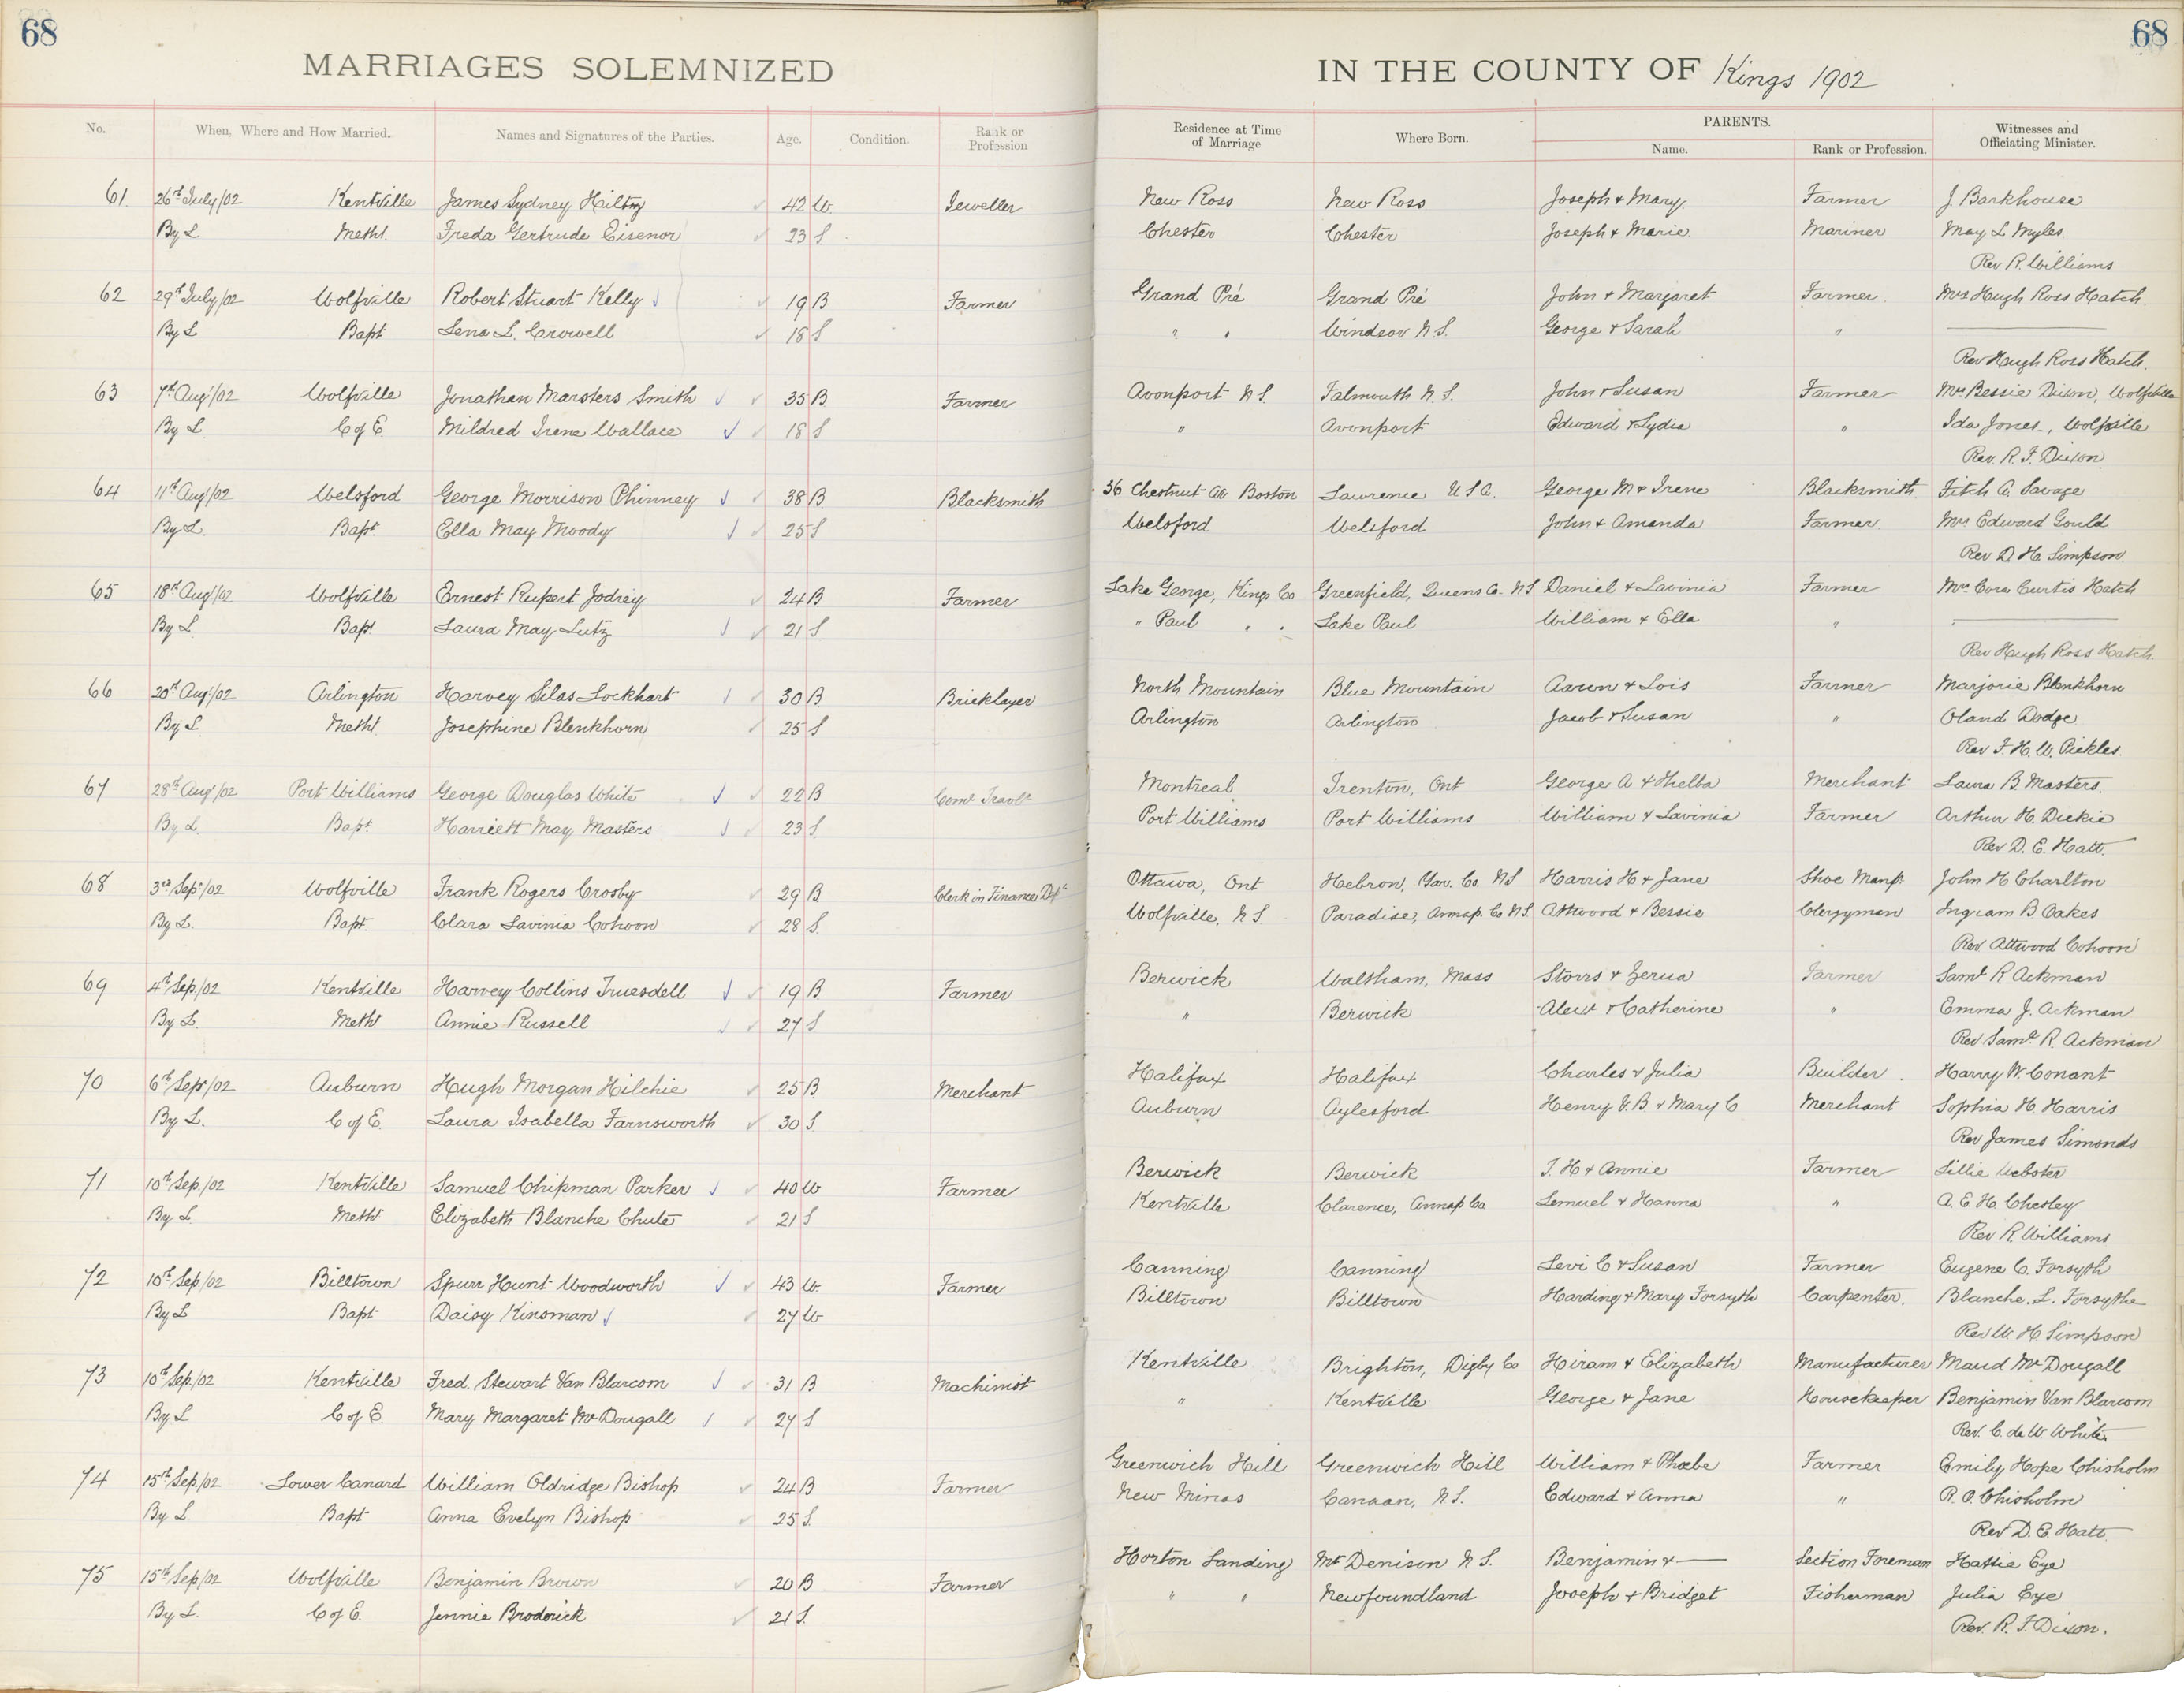 68
68
MARRIAGES SOLEMNIZED IN THE COUNTY OF Kings 1902
No. When, Where and How Married. Names and Signatures of the Parties. Age. Condition. Rank or Profession Residence at Time of Marriage Where Born. PARENTS. Name. Rank or Profession. Witnesses and Officiating Minister.
61. 26th July/02 Kentville James Sydney Hiltz 42 W. Jeweller New Ross New Ross Joseph & Mary Farmer J. Barkhouse
By L Metht. Freda Gertrude Eisenor 23 S Chester Chester Joseph & Marie Mariner May L Myles
Rev R. Williams
62 29th July/02 Wolfville Robert Stuart Kelly 19 B Farmer Grand Pré Grand Pré John & Margaret Farmer Mrs Hugh Ross Hatch.
By L Bapt Lena L. Crowell 18 S " " Windsor N.S. George & Sarah "
Rev Hugh Ross Hatch.
63 7th Augt/02 Wolfville Jonathan Marsters Smith 35 B Farmer Avonport N S. Falmouth N. S. John & Susan Farmer Mrs Bessie Dixon, Wolfville
By L. C of E. Mildred Irene Wallace 18 S " Avonport Edward & Lydia " Ida Jones, Wolfville
Rev. R. F. Dixon
64 11th Augt/02 Welsford George Morrison Phinney 38 B Blacksmith 36 Chestnut Av Boston Lawrence U S A. George M & Irene Blacksmith. Fitch A. Savage
By L. Bapt. Ella May Moody 25 S Welsford Welsford John & Amanda Farmer. Mrs Edward Gould
Rev D. H. Simpson.
65 18th Augt/02 Wolfville Ernest Rupert Jodrey 24 B Farmer Lake George, Kings Co Greenfield, Queens Co. N S Daniel & Lavinia Farmer Mrs Cora Curtis Hatch
By L. Bapt Laura May Lutz 21 S. " Paul " " Lake Paul William & Ella "
Rev Hugh Ross Hatch.
66 20th Augt/02 Arlington Harvey Silas Lockhart 30 B. Bricklayer North Mountain Blue Mountain Aaron & Lois Farmer Marjorie Blenkhorn
By L. Metht. Josephine Blenkhorn 25 S Arlington Arlington Jacob & Susan " Oland Dodge
Rev F. H. W. Pickles.
67 28th Augt/02 Port Williams George Douglas White 22 B Coml Travlr Montreal Trenton, Ont George A & Melba Merchant Laura B. Masters.
By L. Bapt. Harriett May Masters 23 S. Port Williams Port Williams William & Lavinia Farmer Arthur H. Dickie
Rev D. E. Hatt.
68 3rd Sept/02 Wolfville Frank Rogers Crosby 29 B Clerk in Finance Dept Ottawa, Ont Hebron, Yar. Co. N S Harris H & Jane Shoe Manfr. John H Charlton
By L. Bapt. Clara Lavinia Cohoon 28 S. Wolfville, N S Paradise, Annap. Co N S Attwood & Bessie Clergyman Ingram B Oakes
Rev Attwood Cohoon
69 4th Sep./02 Kentville Harvey Collins Truesdell 19 B Farmer Berwick Waltham, Mass Storrs & Zerua Farmer Saml R Ackman
By L. Metht Annie Russell 27 S " Berwick & Catherine " Emma J. Ackman
Rev Saml R. Ackman
70 6th Sept/02 Auburn Hugh Morgan Hilchie 25 B Merchant Halifax Halifax Charles & Julia Builder. Harry W. Conant
By L. C of E. Laura Isabella Farnsworth 30 S. Auburn Aylesford Henry V. B. & Mary C Merchant Sophia H. Harris
Rev James Simonds
71 10th Sep./02 Kentville Samuel Chipman Parker 40 W Farmer Berwick Berwick T. H & Annie Farmer Lillie Webster
By L. Metht Elizabeth Blanche Chute 21 S Kentville Clarence, Annap Co Lemuel & Hanna " A. E. H. Chesley
Rev R Williams
72 10th Sep./02 Billtown Spurr Hunt Woodworth 43 W. Farmer Canning Canning Levi C & Susan Farmer Eugene C. Forsyth
By L Bapt Daisy Kinsman 27 W Billtown Billtown Harding & Mary Forsyth Carpenter. Blanche. L. Forsythe
Rev W. H. Simpson
73 10th Sep./02 Kentville Fred. Stewart Van Blarcom 31 B Machinist Kentville Brighton, Digby Co Hiram & Elizabeth Manufacturer Maud McDougall
By L C of E. Mary Margaret McDougall 27 S " Kentville George & Jane Housekeeper Benjamin Van Blarcom
Rev. C. de W. White
74 15th Sep./02 Lower Canard William Oldridge Bishop 24 B Farmer Greenwich Hill Greenwich Hill William & Phœbe Farmer Emily Hope Chisholm
By L. Bapt Anna Evelyn Bishop 25 S. New Minas Canaan, N S. Edward & Anna " R. O. Chisholm
Rev D. E. Hatt
75 15th Sep/02 Wolfville Benjamin Brown 20 B Farmer Horton Landing Mt Denison N S. Benjamin & — Section Foreman Hattie Eye
By L. C of E. Jennie Broderick 21 S. " " Newfoundland Joseph & Bridget Fisherman Julia Eye
Rev. R. F. Dixon.